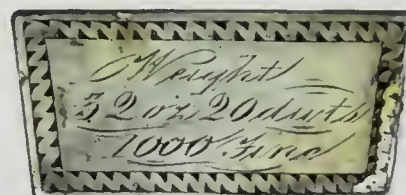 Weight
32 oz 20 dwts
1000 Fine